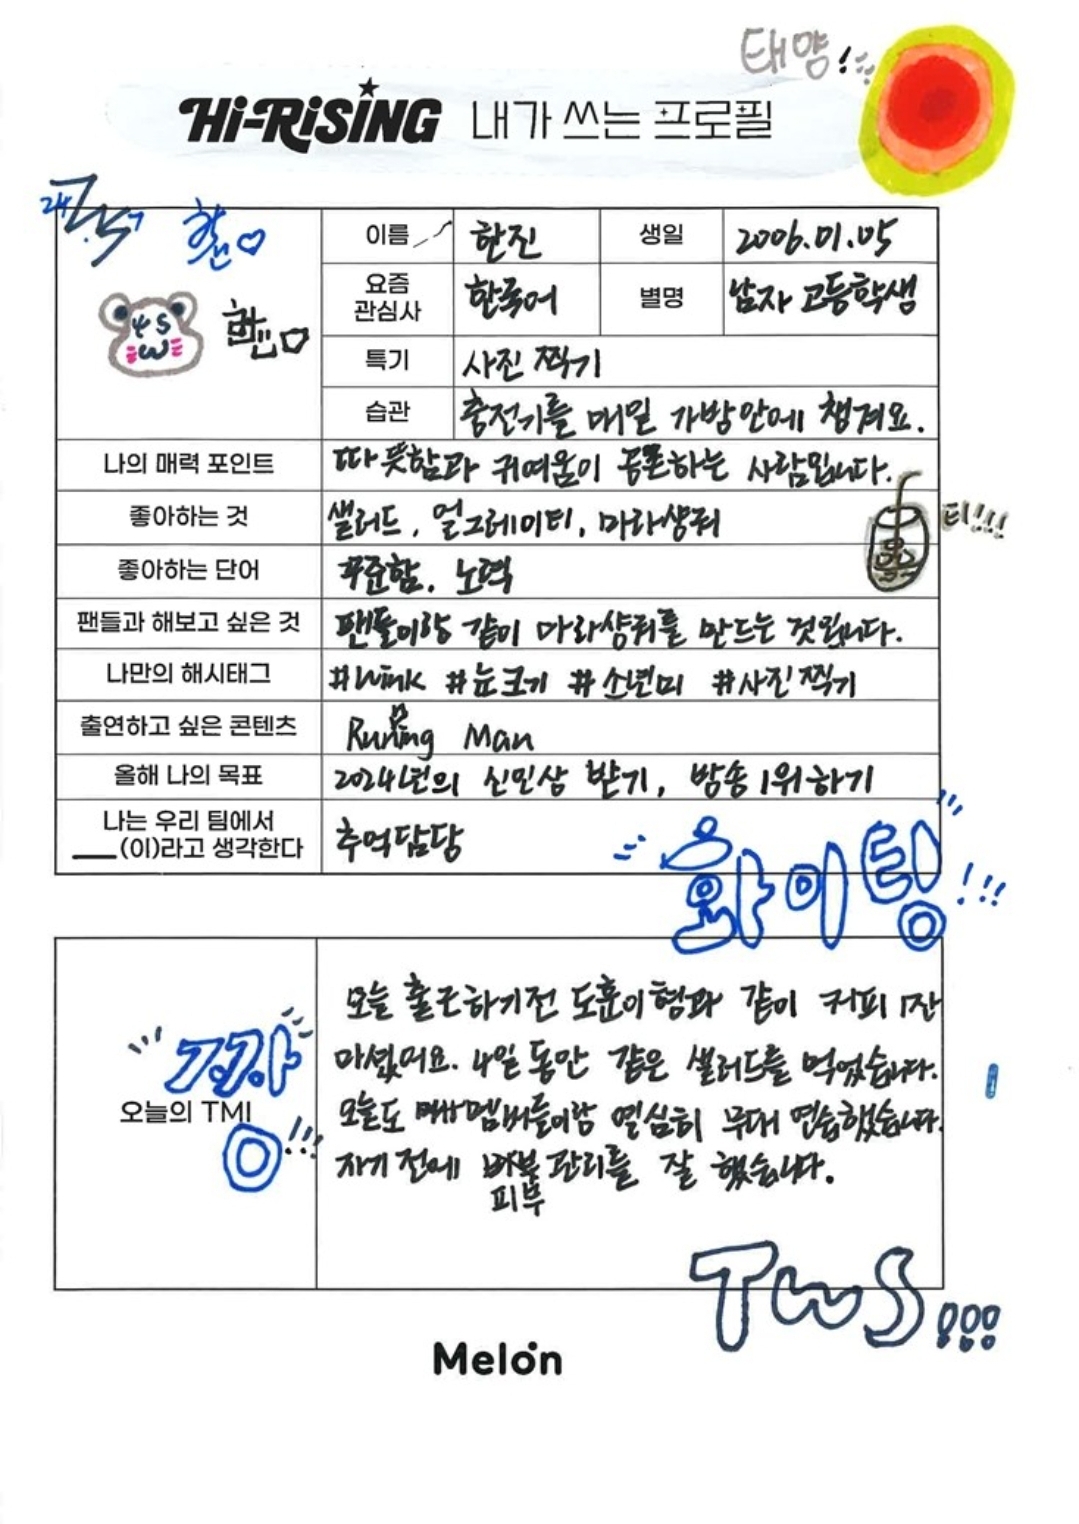 태양!
Hi-RiSiNG 내가 쓰는 프로필
24 7
이름 한진 생일 2006.01.05
요즘 관심사 한국어 별명 남자 고등학생
특기 사진 찍기
습관 충전기를 매일 가방안에 챙겨요.
나의 매력 포인트 따뜻함과 귀여움이 공존하는 사람입니다.
좋아하는 것 샐러드, 얼그레이티, 마라샹궈
티!!!
좋아하는 단어 꾸준함, 노력
팬들과 해보고 싶은 것 팬들이랑 같이 마라샹궈를 만드는 것입니다.
나만의 해시태그 #Wink #눈크기 #소년미 #사진찍기
출연하고 싶은 콘텐츠 Running Man
올해 나의 목표 2024년의 신인상 받기, 방송 1위하기
나는 우리 팀에서
___(이)라고 생각한다 추억담당
화이팅!!!
오늘 출근하기전 도훈이형과 같이 커피 1잔
마셨어요. 4일 동안 같은 샐러드를 먹었습니다.
오늘의 TMI
오늘도 멤버들이랑 열심히 무대 연습했습니다.
자기 전에 피부 관리를 잘 했습니다.
TWS!!!
Melon